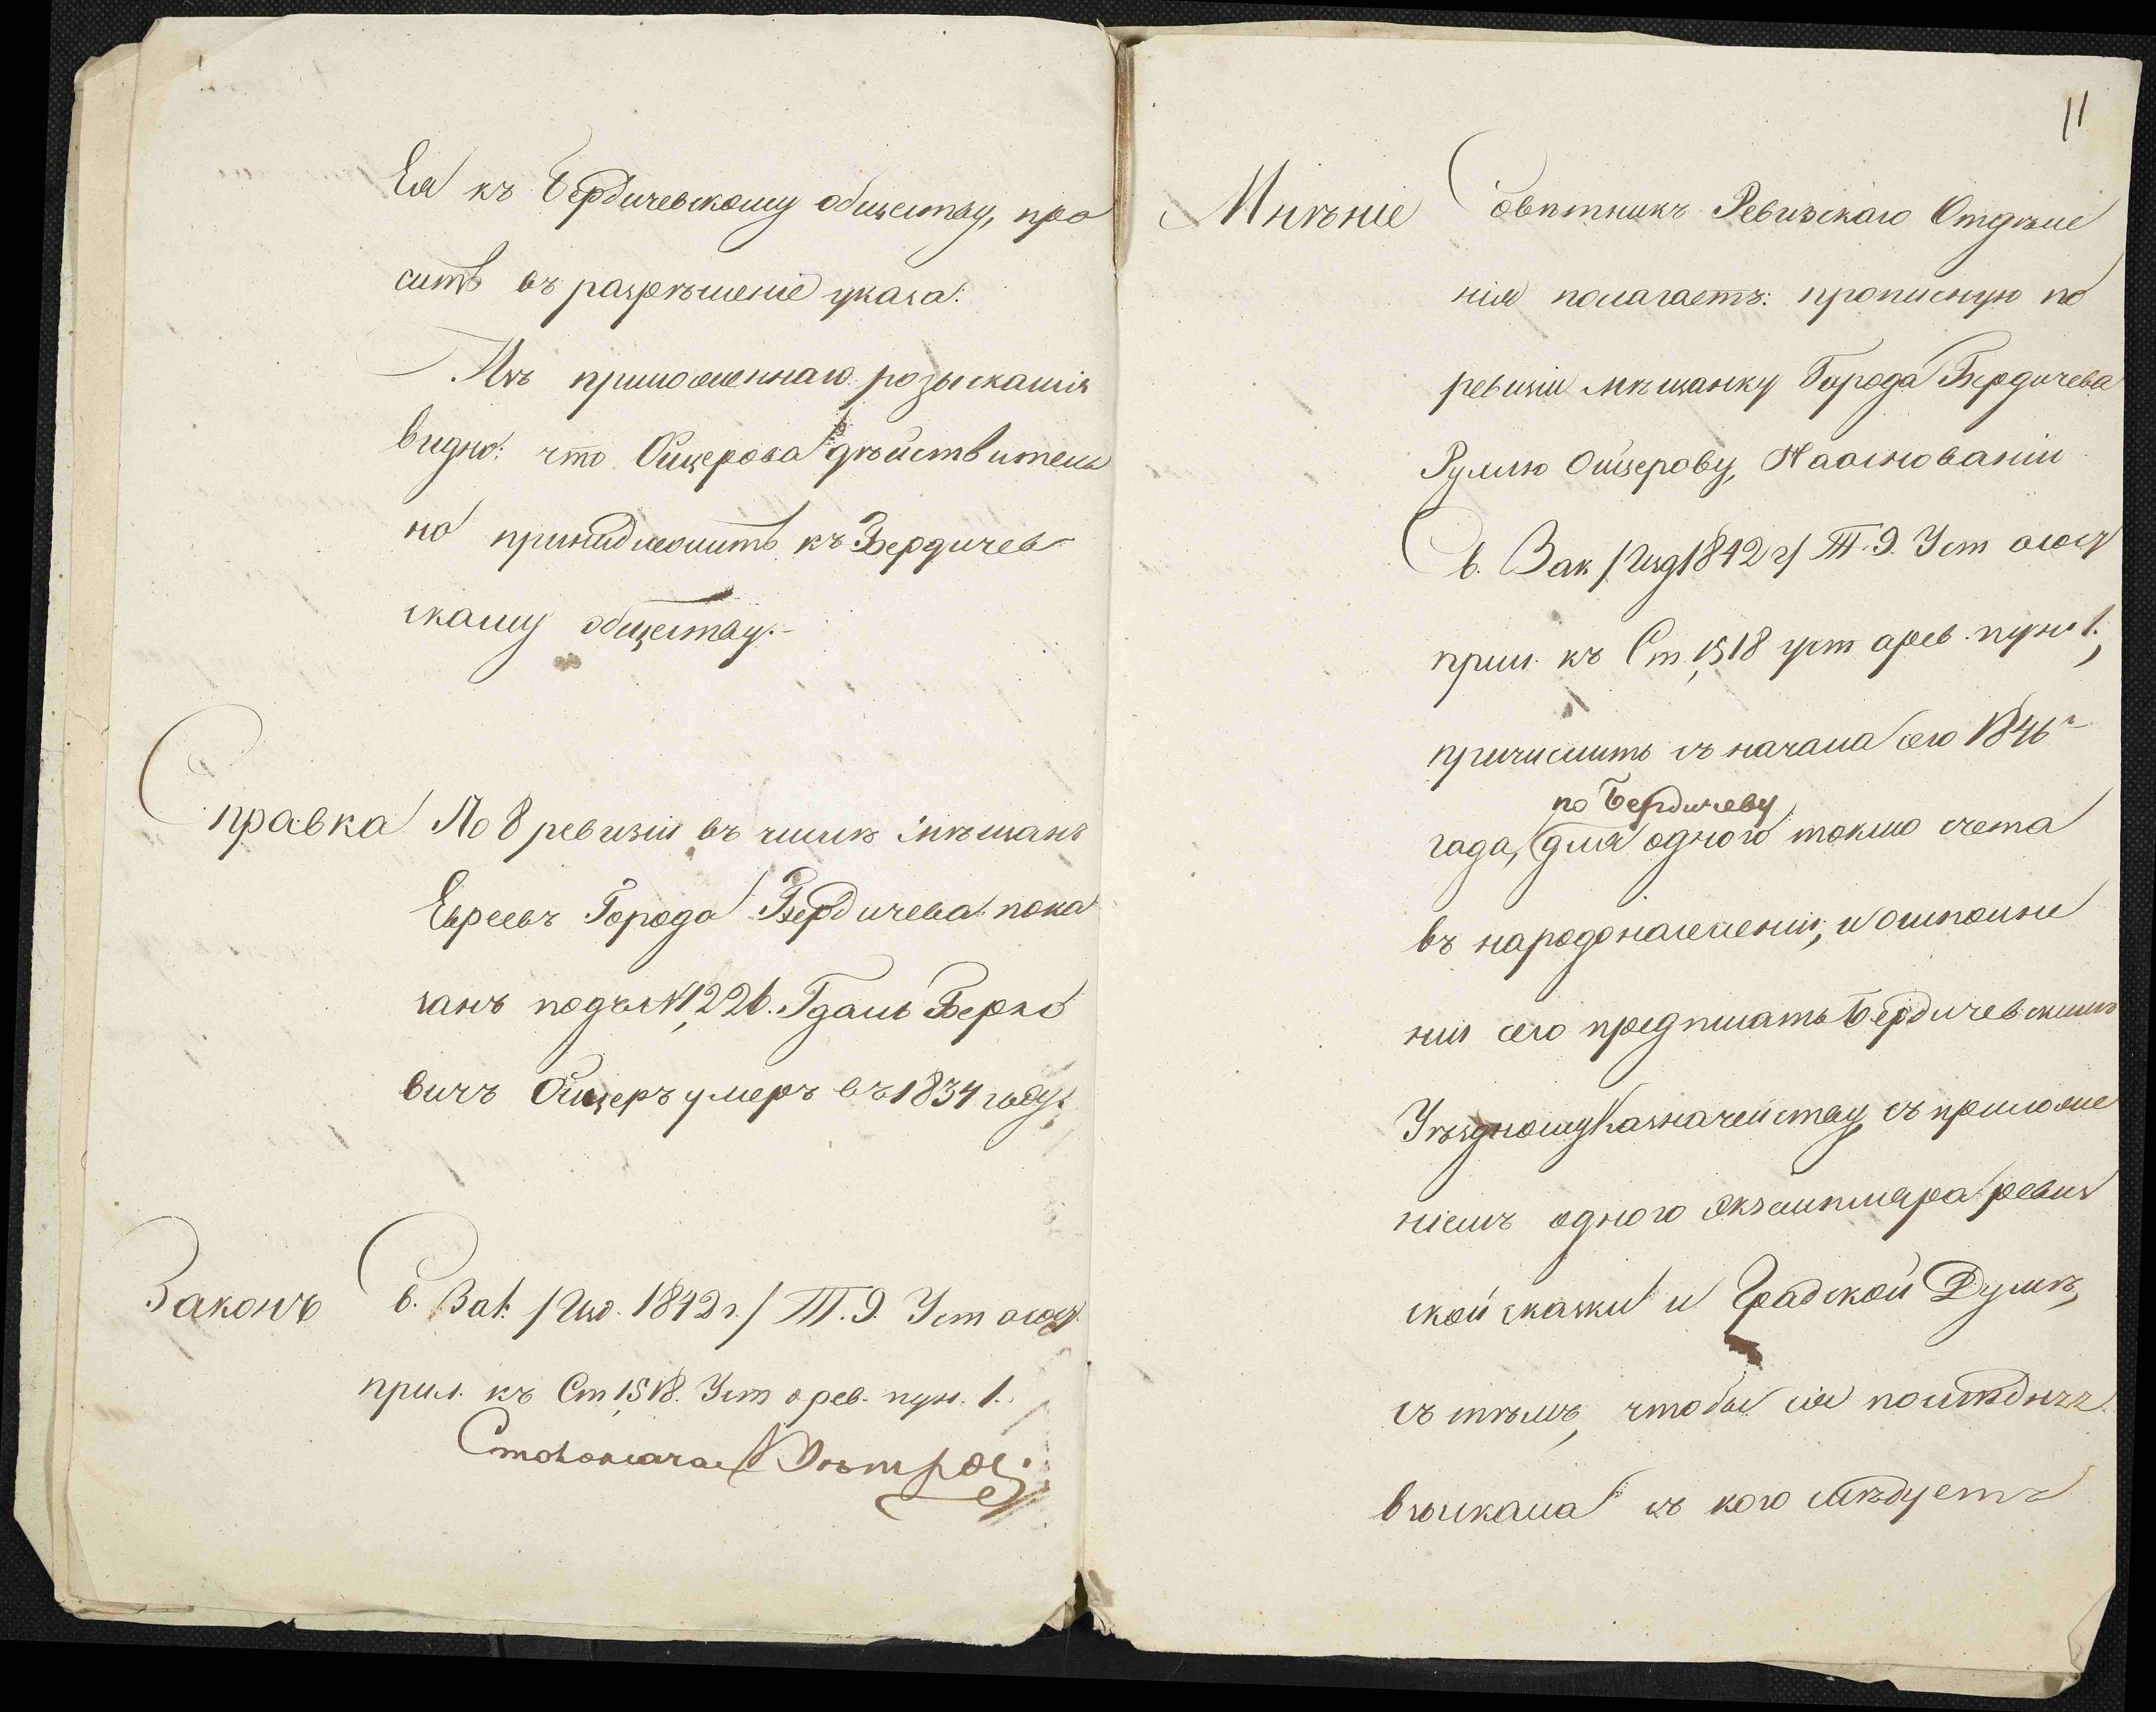 Ея къ Бердичевскому обществу, про
ситъ въ разрѣшеніе указа.
Изъ приложеннаго розысканія
видно: что Ойзерова дѣйствитель
но принадлежитъ къ Бердичев
скому обществу.
Справка По 8 ревизіи въ числѣ мѣщанъ
Евреевъ Города Бердичева пока
занъ подъ № 1,226. Гдаль Берко
вичъ Ойзеръ умеръ въ 1834 году.
Законъ Св. Зак. /Изд. 1842 г./ Т. 9. Уст о сос
прил. къ Ст 1,518. Уст о рев. пун. 1.
Столоначал
11
Мнѣніе Совѣтникъ Ревизскаго Отдѣле
нія полагаетъ: прописную по
ревизіи мѣщанку Города Бердичева
Румлю Ойзерову, На основаніи
Св. Зак /Изд 1842 г/ Т. 9. Уст о сос
прил. къ Ст 1,518 уст о рев. пун 1.,
причислить съ начала сего 1846 г
по Бердичеву
года, для одного токмо счета
въ народонаселеніи, и о исполне
ніи сего предписать Бердичевскому
Уѣздному Казначейству, съ приложе
ніемъ одного экземпляра ревиз
ской сказки и Градской Думѣ,
съ тѣмъ, чтобы сія послѣдняя
взыскала съ кого слѣдуетъ